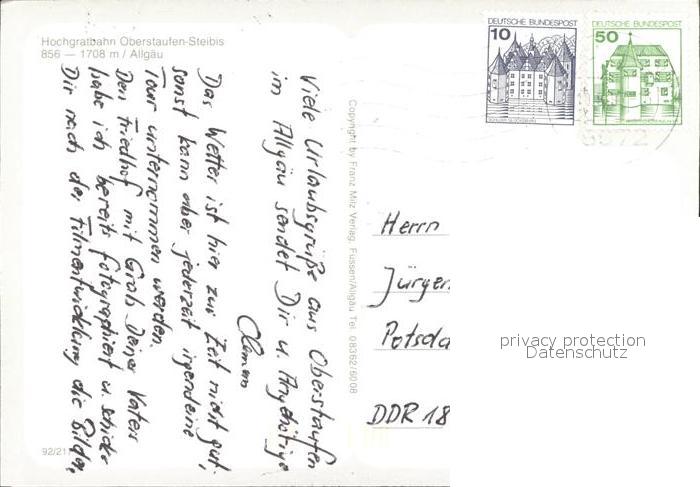 Hochgratbahn Oberstaufen-Steibis
856 — 1708 m / Allgäu
Viele Urlaubsgrüße aus Oberstaufen
im Allgäu sendet Dir u. Angehörige
Clemens
Das Wetter ist hier zur Zeit nicht gut,
sonst kann aber jederzeit irgendeine
Tour unternommen werden.
Den Friedhof mit Grab Deines Vaters
habe ich bereits fotographiert u. schicke
Dir nach der Filmentwicklung die Bilder.
92/21
Copyright by Franz Milz Verlag, Füssen/Allgäu Tel. 08362/6008
DEUTSCHE BUNDESPOST
10
DEUTSCHE BUNDESPOST
50
Herrn
Jürgen
Potsda
DDR 18
privacy protection
Datenschutz